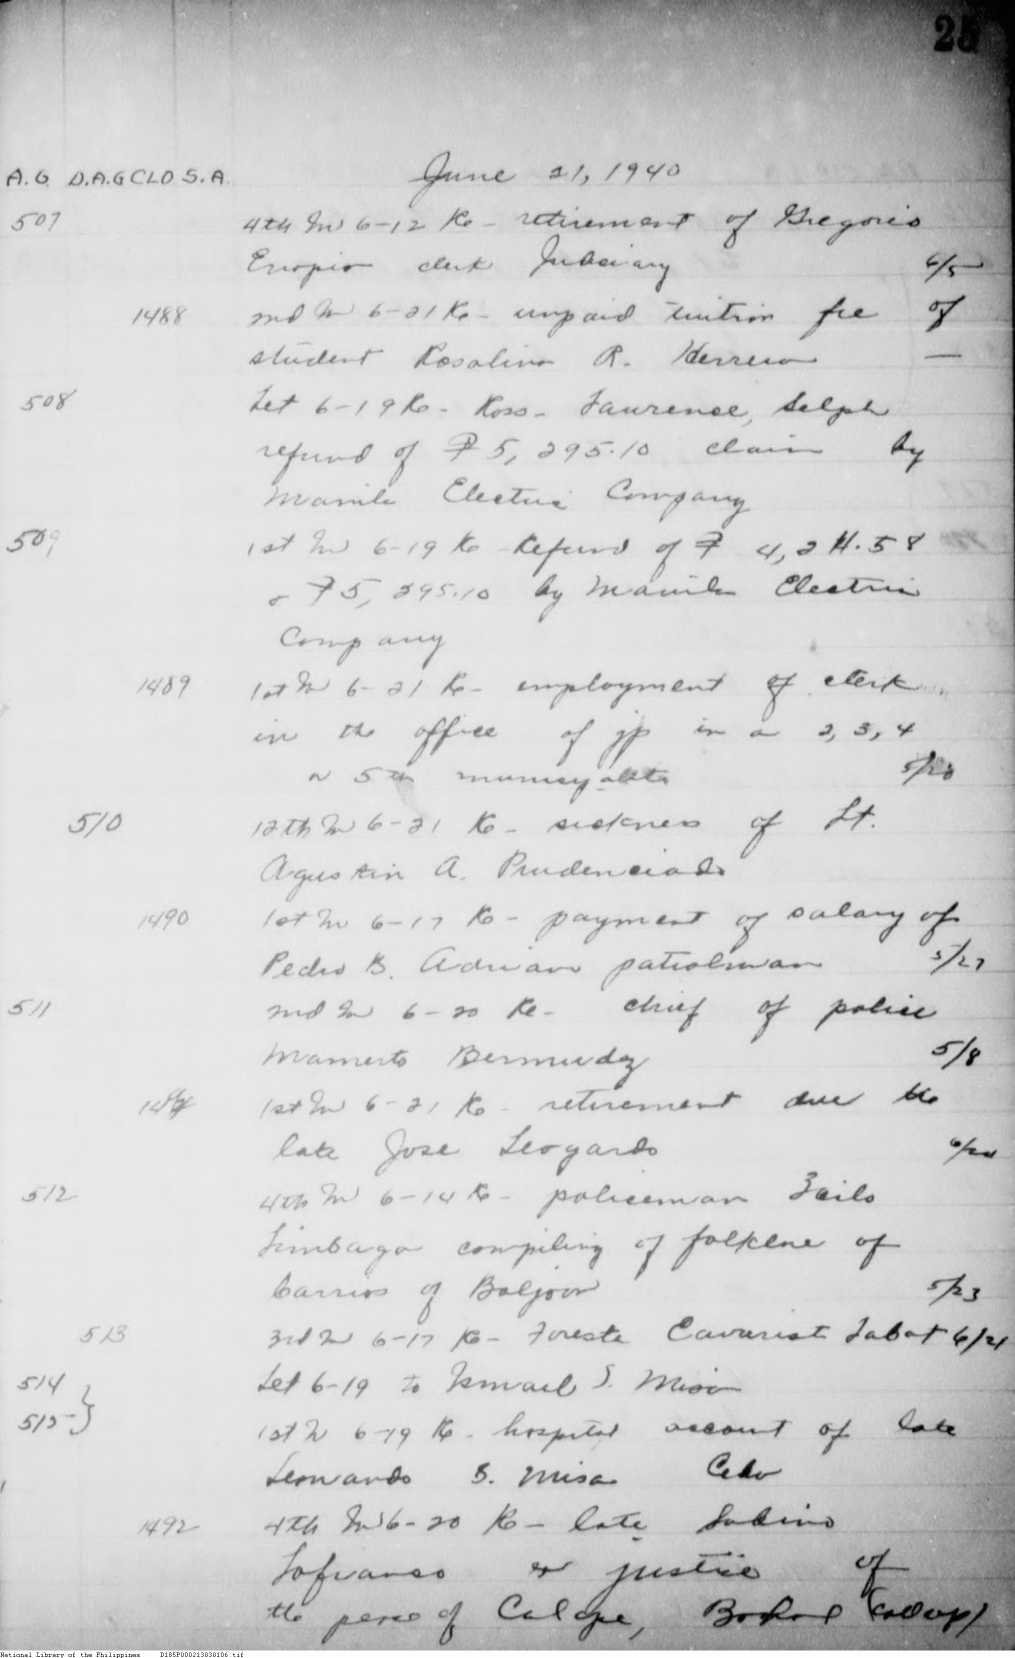 25
A.G. D.A.G CLO S.A. June 21, 1940
507 4th In 6-12 Re- retirement of Gregorio
Eropio clerk Judiciary 6/5
1488 2nd In 6-21 Re- unpaid tuition fee of
student Rosalino R. Herrera —
508 Let 6-19 Re- Ross- Laurence, Selph
refund of ₱5,295.10 claim by
Manila Electric Company
509 1st In 6-19 Re- Refund of ₱ 4,2 .58
₱5,295.10 by Manila Electric
Company
1489 1st In 6-21 Re- employment of clerk
in the office of jp in a 2, 3, 4
5th 5/20
510 12th In 6-21 Re- sickness of Lt.
Agustin A. Prudenciado
1490 1st In 6-17 Re- payment of salary of
Pedro B. Adriano patrolman 5/27
511 2nd In 6-20 Re- chief of police
Mamerto Bermudez 5/8
1st In 6-21 Re- retirement due the
late Jose Leogardo 6/20
512 4th In 6-14 Re- policeman Zoilo
Limbaga compiling of folklore of
barrios of Boljoon 5/23
513 3rd In 6-17 Re- 6/21
514 Let 6-19 to Ismael S. Misa
515 } 1st In 6-19 Re- hospital account of late
Leonardo S. Misa Cebu
1492 4th In 6-20 Re- late Sabino
Lofranco justice of
the peace of Calape, Bohol
National Library of the Philippines D185P000213838106.tif